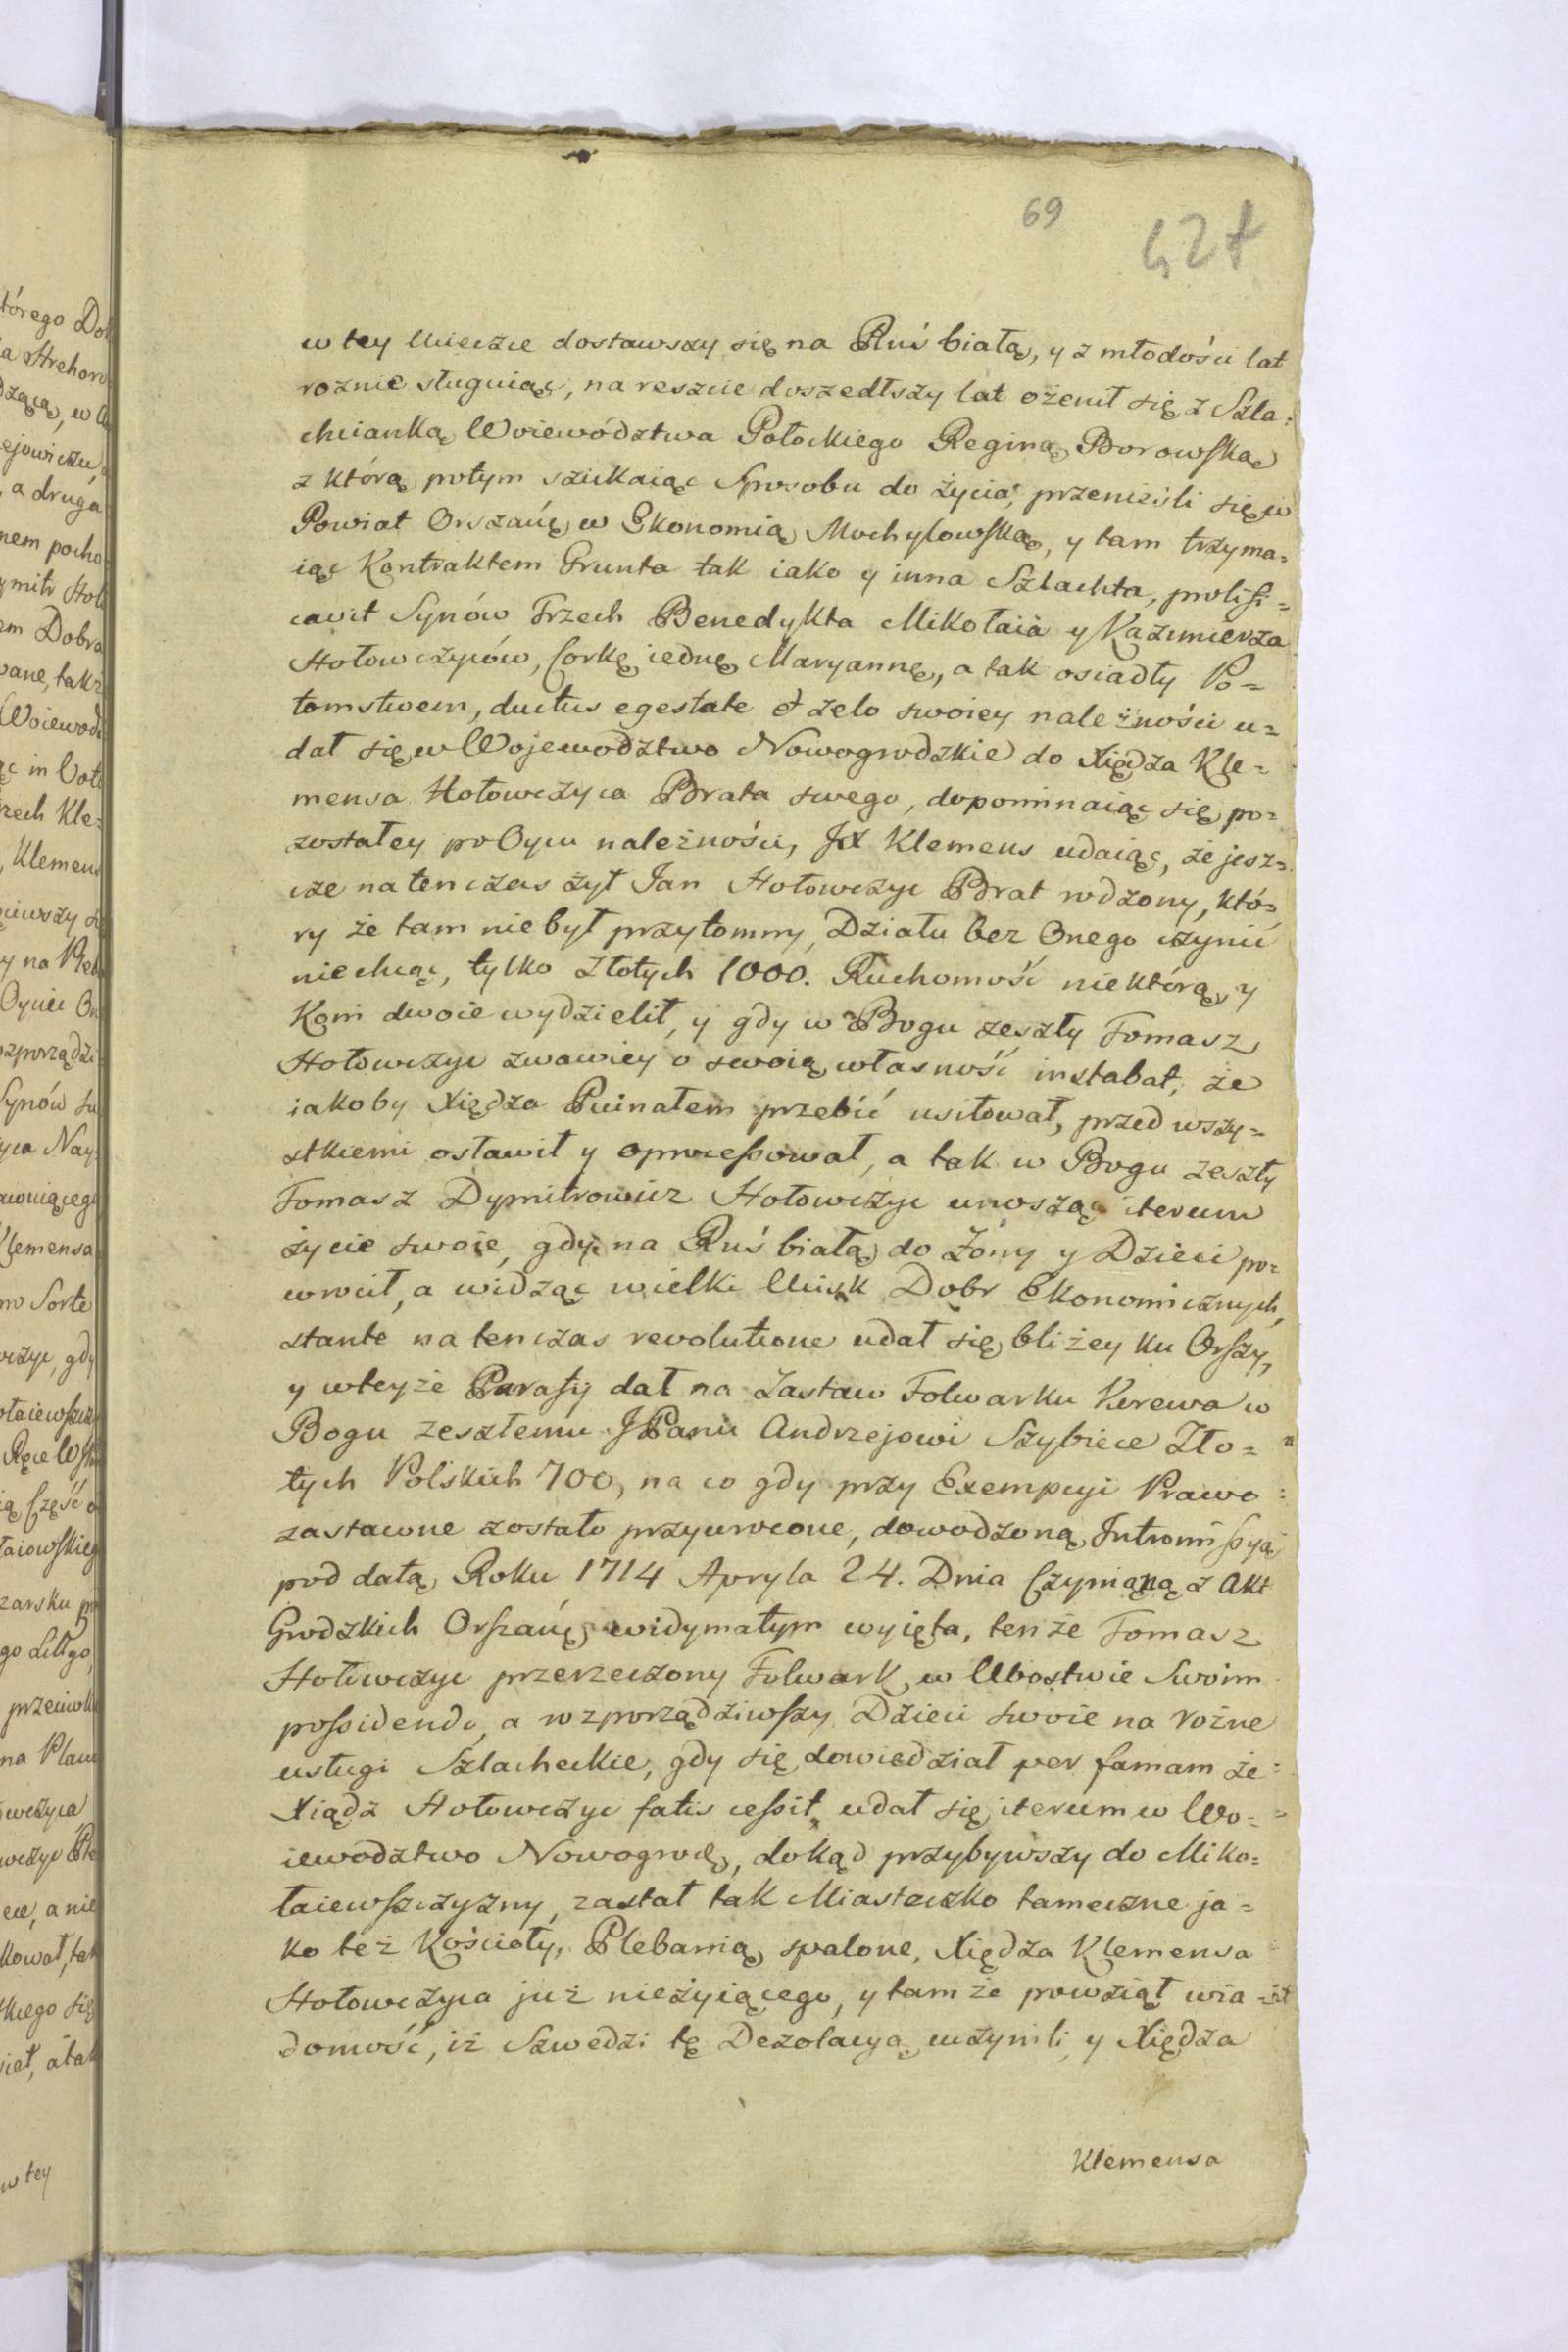 69
427
w tey Ucieczce dostawszy się na Ruś białą, y z młodości lat
roznie sługuiąc, na reszcie doszedłszy lat ożenił się z Szla=
chcianką Woiewództwa Połockiego Reginą Borowską
z którą potym szukaiąc Sposobu do życia, przenieśli się w
Powiat Orszań: w Ekonomią Mochylowską, y tam trzyma=
iąc Kontraktem Grunta tak iako y inna Szlachta, prolifi=
cavit Synów Trzech Benedykta Mikołaia y Kazimierza
Hołowczyców, Corkę iednę Maryannę, a tak osiadły Po=
tomstwem, ductus egestate et zelo swoiey należności u=
dał się w Wojewodztwo Nowogrodzkie do Xiędza Kle=
mensa Hołowczyca Brata swego, dopominaiąc się po=
zostałey po Oycu należności, JX Klemens udaiąc, że jesz=
cze na ten czas żył Jan Hołowczyc Brat rodzony, któ=
ry że tam nie był przytomny, Działu bez Onego czynić
niechcąc, tylko Złotych 1000. Ruchomość niektórą, y
Koni dwoie wydzielił, y gdy w Bogu zeszły Tomasz
Hołowczyc zwawiey o swoią własność instabat, że
iakoby Xiędza Puinałem przebić usiłował, przed wszy=
stkiemi osławił y oprocessował, a tak w Bogu zeszły
Tomasz Dymitrowicz Hołowczyc unosząc iterum
życie swoie, gdy na Ruś białą do Żony y Dzieci po=
wrócił, a widząc wielki Ucisk Dobr Ekonomicznych,
stante na tenczas revolutione udał się bliżey ku Orszy,
y wteyże Parafij dał na Zastaw Folwarku Kerewa w
Bogu zeszłemu JPanu Andrzejowi Szybiece Zło=
tych Polskich 700, na co gdy przy Exempcyi Prawo
zastawne zostało przywrocone, dowodzoną Intromissyą
pod datą Roku 1714 Apryla 24. Dnia Czynioną z Akt
Grodzkich Orszań: widymatym wyięta, tenże Tomasz
Hołowczyc przerzeczony Folwark w Ubostwie Swoim
possidendo, a rozporządziwszy Dzieci swoie na rożne
usługi Szlacheckie, gdy się dowiedział per famam że
Xiądz Hołowczyc fatis cessit, udał się iterum w Wo=
iewodztwo Nowogrod:, dokąd przybywszy do Miko=
łaiewszczyzny, zastał tak Miasteczko tameczne ja=
ko też Kościoły, Plebanią spalone, Xiędza Klemensa
Hołowczyca już nieżyiącego, y tamże powziął wia=
domość, iż Szwedzi tę Dezolacyą uczynili, y Xiędza
Klemensa